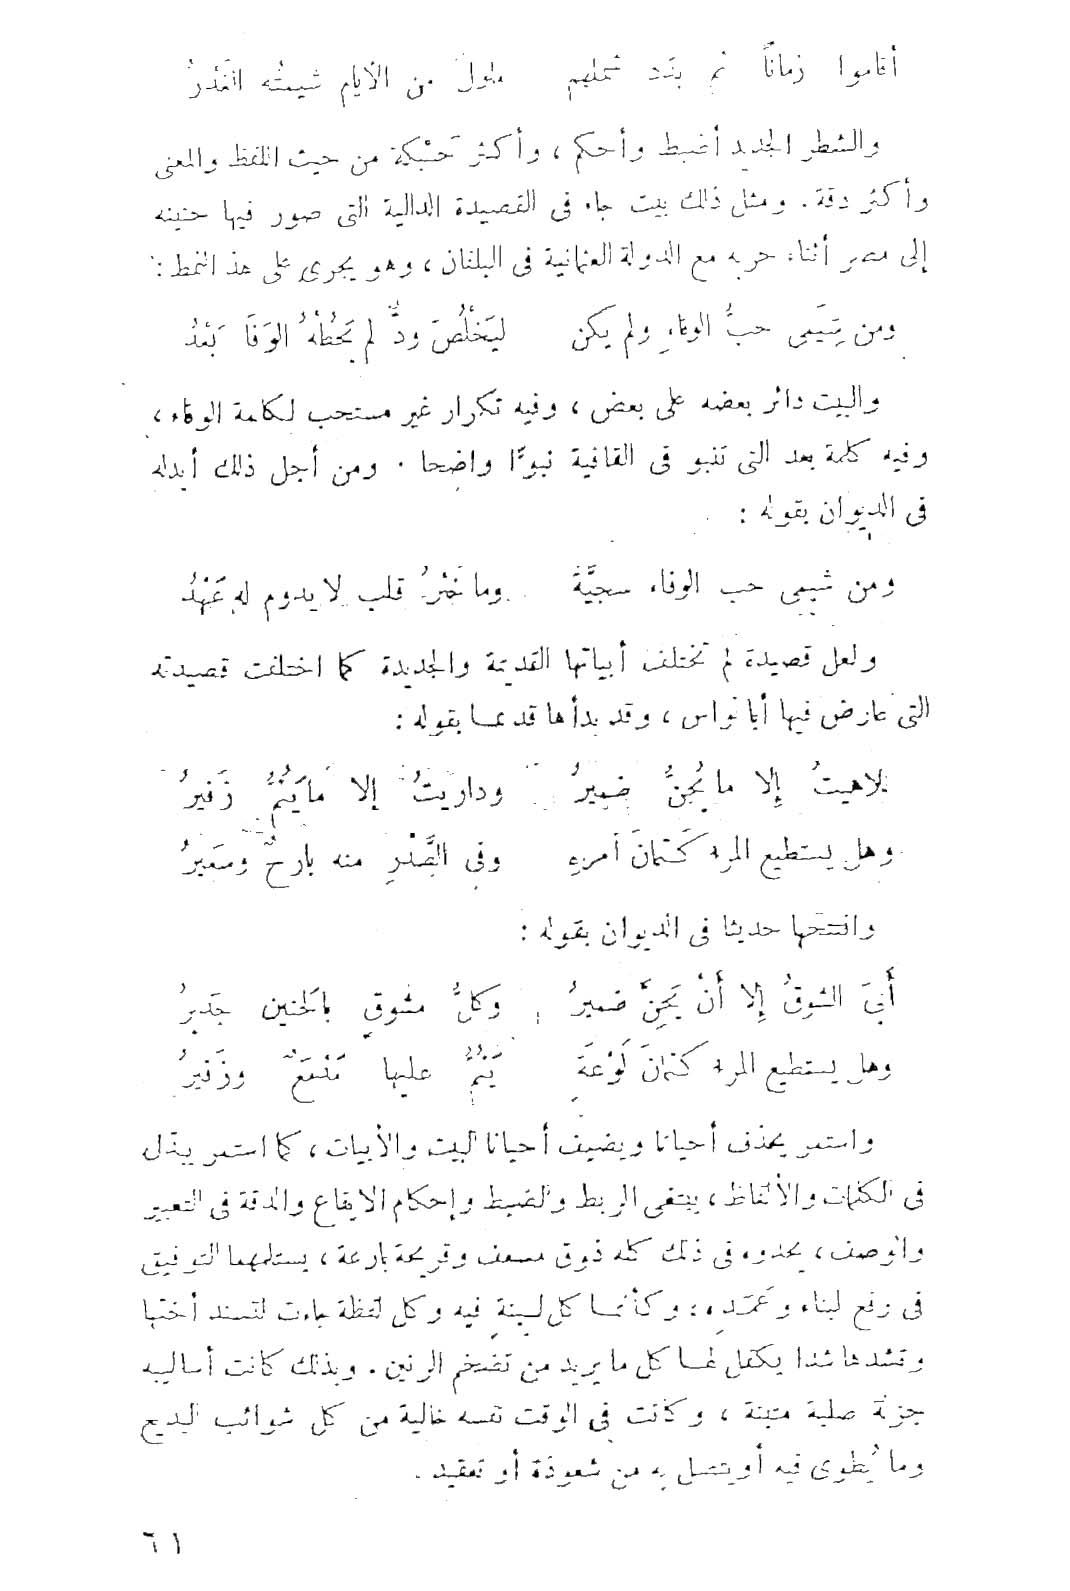 أقاموا زماناً ثم بدَّد شملهم ملول من الأيام شيمتُه الغَدْرُ
والشطر الجديد أضبط وأحكم ، وأكثر حَبْكة من حيث اللفظ والمعنى
وأكثر دقة . ومثل ذلك بيت جاء فى القصيدة الدالية التى صور فيها حنينه
إلى مصر أثناء حربه مع الدولة العثمانية فى البلقان ، وهو يجرى على هذا النمط :
ومن شِيَمى حبُّ الوفاءِ ولم يكن ليَخْلُصَ ودٌّ لم يَحُطْهُ الوَفَا بَعْدُ
والبيت دائر بعضه على بعض ، وفيه تكرار غير مستحب لكلمة الوفاء ،
وفيه كلمة بعد التى تنبو فى القافية نبوًّا واضحا . ومن أجل ذلك أبدله
فى الديوان بقوله :
ومن شيمى حب الوفاء سجيَّةً وما خَيْرُ قلب لا يدوم له عَهْدُ
ولعل قصيدة لم تختلف أبياتها القديمة والجديدة كما اختلفت قصيدته
التى عارض فيها أبا نواس ، وقد بدأها قديما بقوله :
تلاهيتُ إلا ما يُجنُّ ضميرُ وداريتُ إلا ما يَنُمُّ زَفيرُ
وهل يستطيع المرء كَتْمانَ أمرهِ وفى الصَّدْرِ منه بارحٌ وسَعيرُ
وافتتحها حديثا فى الديوان بقوله :
أَبَى الشوقُ إلا أنْ يَحِنَّ ضميرُ وكلُّ مشوقٍ بالحَنين جَديرُ
وهل يستطيع المرء كتمانَ لَوْعَةٍ يَنُمُّ عليها مَدْمَعٌ وزَفيرُ
واستمر يحذف أحيانا ويضيف أحيانا البيت والأبيات ، كما استمر يبدّل
فى الكلمات والألفاظ ، يبتغى الربط والضبط وإحكام الايقاع والدقة فى التعبير
والوصف ، يحدوه فى ذلك كله ذوق مسعف وقريحة بارعة ، يستلهمها التوفيق
فى رفع البناء وعَمَده ، وكأنما كل لبنةٍ فيه وكل لفظة جاءت لتسند أختها
وتشدها شدا يكفل لها كل ما يريد من تضخم الرنين . وبذلك كانت أساليبه
جزلة صلبة متينة ، وكانت فى الوقت نفسه خالية من كل شوائب البديع
وما يُطوى فيه أو يتصل به من شعوذة أو تعقيد .
٦١